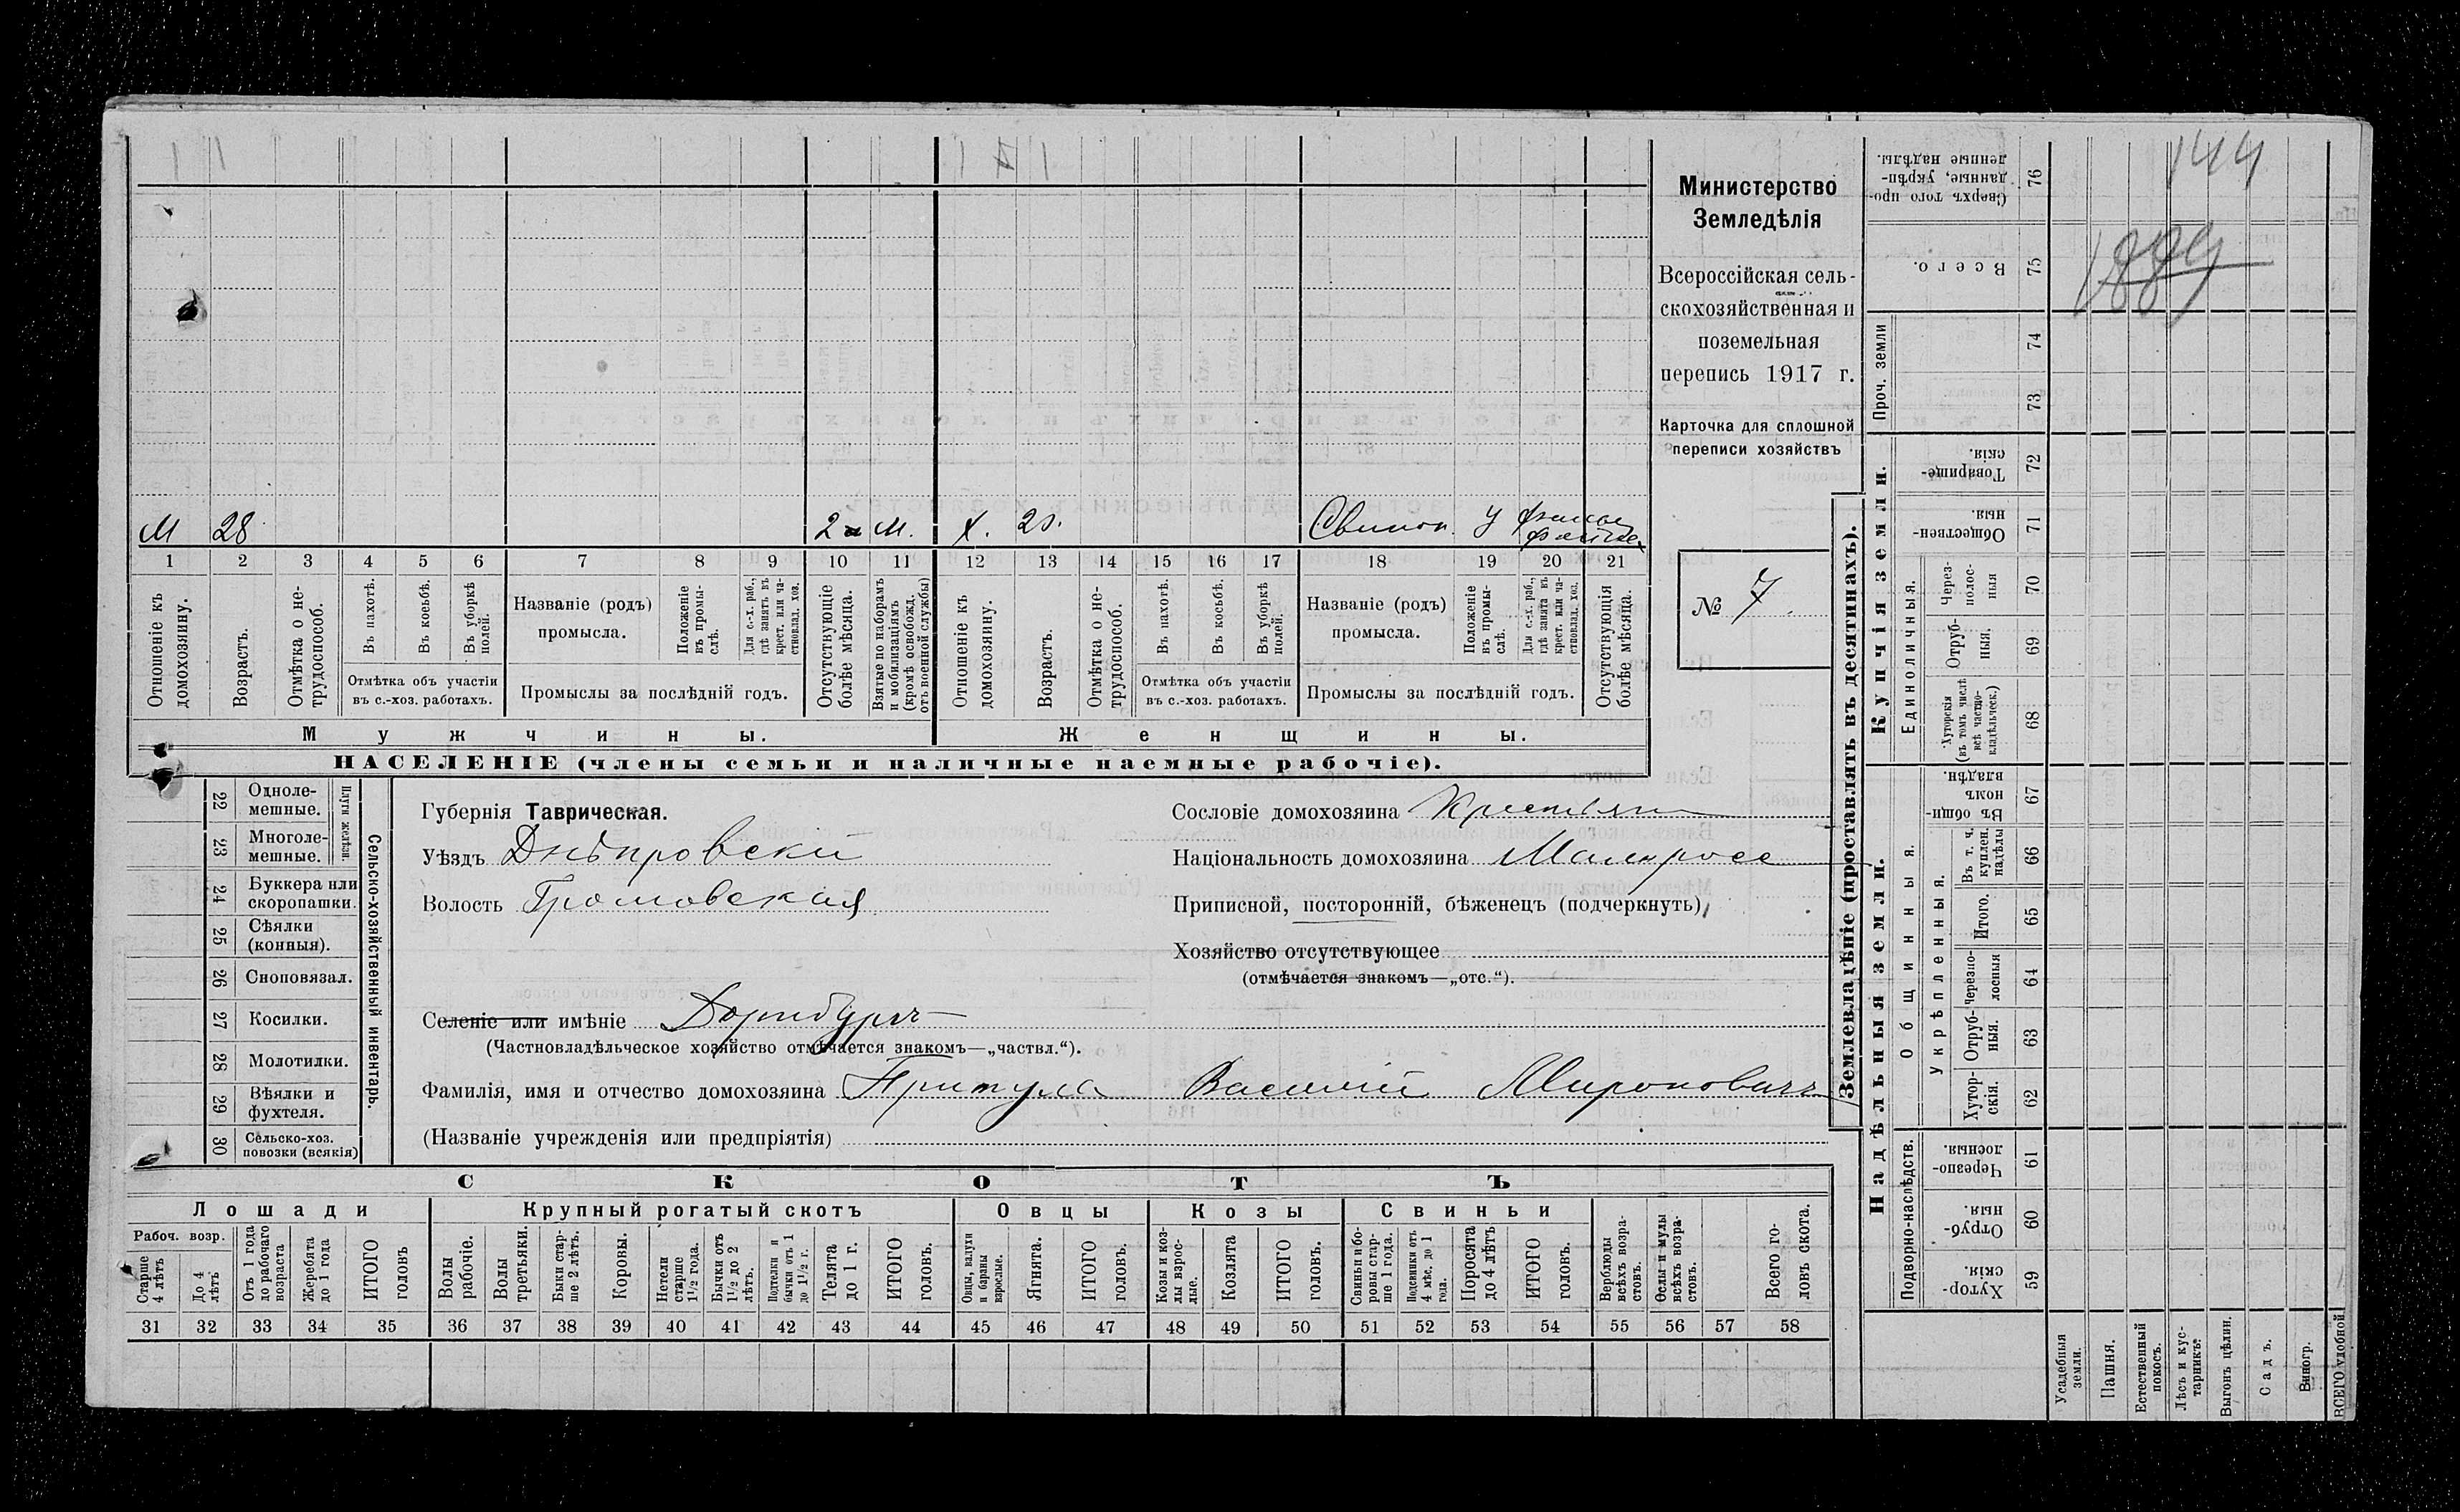 144
1889
Министерство
Земледѣлія
Всероссійская сель-
скохозяйственная и
поземельная
перепись 1917 г.
Карточка для сплошной
переписи хозяйствъ
№ 7.
М 28 2 М. Х. 20. У
1 2 3 4 5 6 7 8 9 10 11 12 13 14 15 16 17 18 19 20 21
Отношеніе къ домохозяину.
Возрастъ.
Отмѣтка о не-трудоспособ.
Въ пахотѣ.
Въ косьбѣ.
Въ уборкѣ полей.
Отмѣтка объ участіи
въ с.-хоз. работахъ.
Названіе (родъ)
промысла.
Положеніе въ промы-слѣ.
Для с.-х. раб., гдѣ занятъ въ крест. или ча-стновлад. хоз.
Промыслы за послѣдній годъ.
Отсутствующіе болѣе мѣсяца.
Взятые по наборамъ и мобилизаціямъ (кромѣ освобожд. отъ военной службы)
Отношеніе къ домохозяину.
Возрастъ.
Отмѣтка о не-трудоспособ.
Въ пахотѣ.
Въ косьбѣ.
Въ уборкѣ полей.
Отмѣтка объ участіи
въ с.-хоз. работахъ.
Названіе (родъ)
промысла.
Положеніе въ промы-слѣ.
Для с.-х. раб., гдѣ занята въ крест. или ча-стновлад. хоз.
Промыслы за послѣдній годъ.
Отсутствующія болѣе мѣсяца.
Мужчины. Женщины.
НАСЕЛЕНІЕ (члены семьи и наличные наемные рабочіе).
22 Одноле-мешные.
23 Многоле-мешные.
Плуги желѣзн.
24 Буккера или скоропашки.
25 Сѣялки (конныя).
26 Сноповязал.
27 Косилки.
28 Молотилки.
29 Вѣялки и фухтеля.
30 Сельско-хоз. повозки (всякія)
Сельско-хозяйственный инвентарь.
Губернія Таврическая.
Уѣздъ Днѣпровскій
Волость Громовская
Сословіе домохозяина Крестьян
Національность домохозяина Малоросс
Приписной, посторонній, бѣженецъ (подчеркнуть)
Хозяйство отсутствующее
(отмѣчается знакомъ—„отс.“).
Селеніе или имѣніе Дорнбургъ
(Частновладѣльческое хозяйство отмѣчается знакомъ—„частвл.“).
Фамилія, имя и отчество домохозяина Притула Василій Мироновичъ
(Названіе учрежденія или предпріятія)
СКОТЪ
Лошади Крупный рогатый скотъ Овцы Козы Свиньи
Рабоч. возр.
Старше 4 лѣтъ
До 4 лѣтъ
Отъ 1 года до рабочаго возраста
Жеребята до 1 года
ИТОГО головъ
Волы рабочіе.
Волы третьяки.
Быки стар-ше 2 лѣтъ.
Коровы.
Нетели старше 1½ года.
Бычки отъ 1½ до 2 лѣтъ.
Подтелки и бычки отъ 1 до 1½ г.
Телята до 1 г.
ИТОГО головъ.
Овцы, валухи и бараны взрослые.
Ягнята.
ИТОГО головъ.
Козы и коз-лы взрос-лые.
Козлята
ИТОГО головъ.
Свиньи и бо-ровы стар-ше 1 года.
Подсвинки отъ 4 мѣс. до 1 года.
Поросята до 4 лѣтъ
ИТОГО головъ.
Верблюды всѣхъ возра-стовъ.
Ослы и мулы всѣхъ возра-стовъ.
Всего го-ловъ скота.
31 32 33 34 35 36 37 38 39 40 41 42 43 44 45 46 47 48 49 50 51 52 53 54 55 56 57 58
Землевладѣніе (проставлять въ десятинахъ).
Купчія земли.
Надѣльныя земли.
Сверхъ того про-данные, укрѣп-ленные надѣлы. 76
Всего. 75
Проч. земли 74
73
Товарище-скія. 72
Обществен-ныя. 71
Единоличныя.
Через-полос-ныя 70
Отруб-ныя. 69
Хуторскія (въ томъ числѣ всѣ частно-владѣльческ.) 68
Общинныя.
Въ общи-номъ владѣн. 67
Укрѣпленныя.
Въ т. ч. куплен. надѣлы 66
Итого. 65
Черезпо-лосныя 64
Отруб-ныя. 63
Хутор-скія. 62
Подворно-наслѣдств.
Черезпо-лосныя. 61
Отруб-ныя. 60
Хутор-скія. 59
Усадебныя земли.
Пашня.
Естественный покосъ.
Лѣсъ и кус-тарникъ.
Выгонъ цѣлин.
Садъ.
Виногр.
ВСЕГО удобной